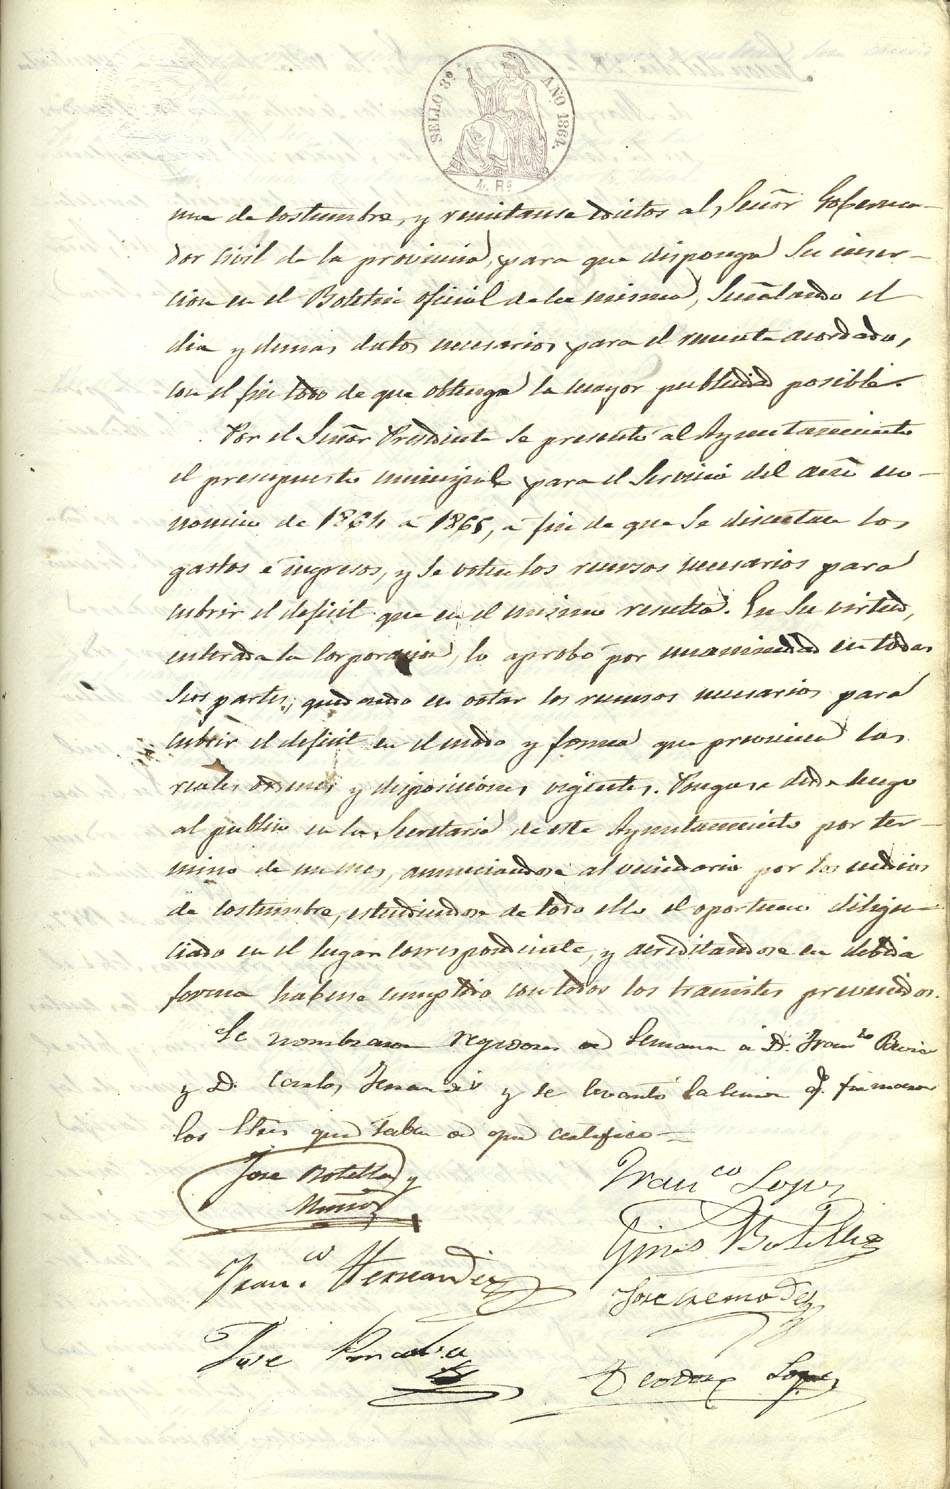 SELLO 3º AÑO 1864.
4. Rs
de costumbre, y remitanse al Señor Goberna-
dor Civil de la provincia, para que disponga su inser-
cion en el Boletin oficial de la misma, señalando el
dia y demas datos necesarios para el remate acordado,
con el fin todo de que obtenga la mayor publicidad posible.
Por el Señor Presidente se presentó al Ayuntamiento
el presupuesto municipal para el servicio del año eco-
nomico de 1864 á 1865, á fin de que se discutan los
gastos é ingresos, y se voten los recursos necesarios para
cubrir el deficit que en el mismo resulta. En su virtud,
enterada la Corporacion, lo aprobó por unanimidad en todas
sus partes, quedando en votar los recursos necesarios para
cubrir el deficit en el modo y forma que previenen las
reales ordenes y disposiciones vigentes. Pongase desde luego
al publico en la Secretaria de este Ayuntamiento por ter-
mino de un mes, anunciandose al vecindario por los medios
de costumbre, estendiendose de todo ello el oportuno diligen-
ciado en el lugar correspondiente, y acreditandose en debida
forma haberse cumplido con todos los tramites prevenidos.
Se nombraron regidores de semana á D. Franco
y D. Carlos y se levantó la sesion q. firmaron
los Sres que saben de que certifico
Jose Botella y
Muñoz
Franco Lopez
Gines Botella
Franco Hernandez
Jose
Jose
Teodoro Lopez